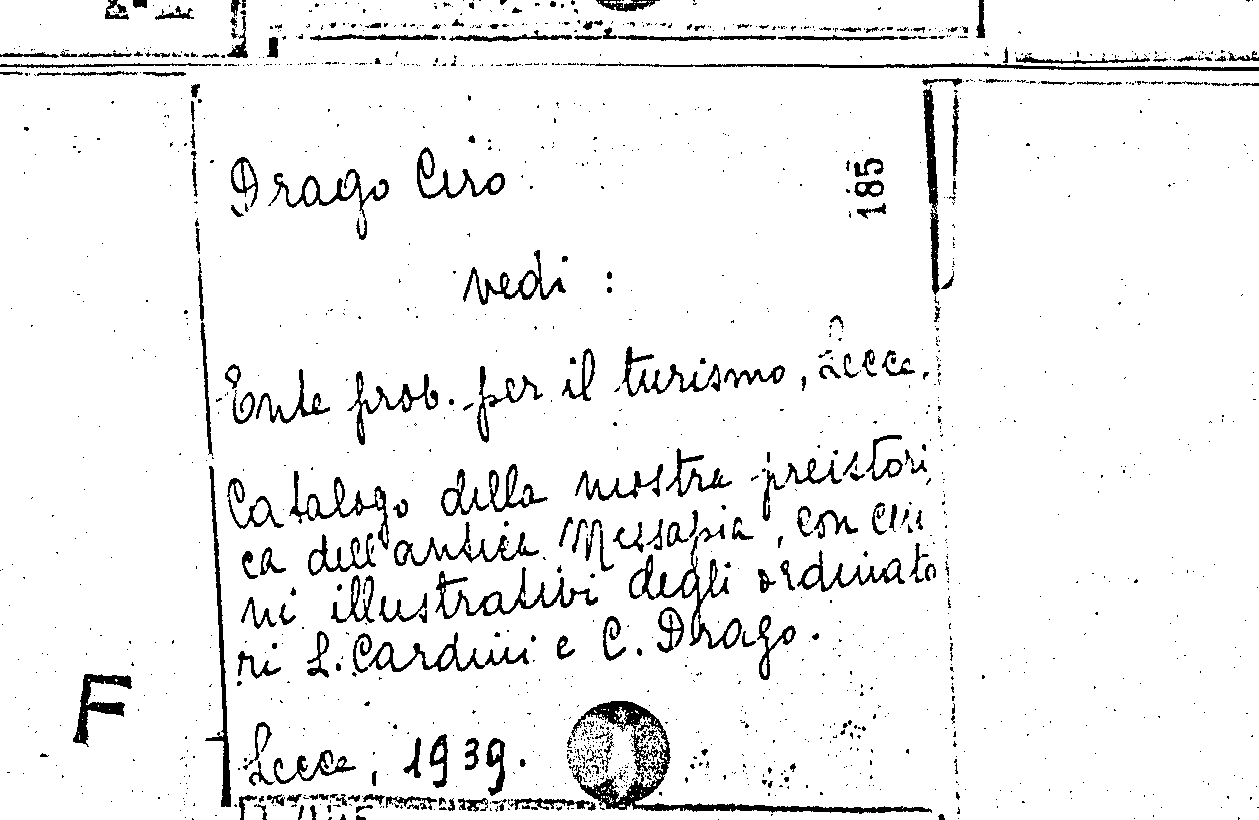 Drago Ciro
185
vedi :
Ente prov. per il turismo, Lecce.
Catalogo della mostra preistori
ca dell'antica Messapia, con cen
ni illustrativi degli ordinato
ri L. Cardini e C. Drago.
F
Lecce, 1939.